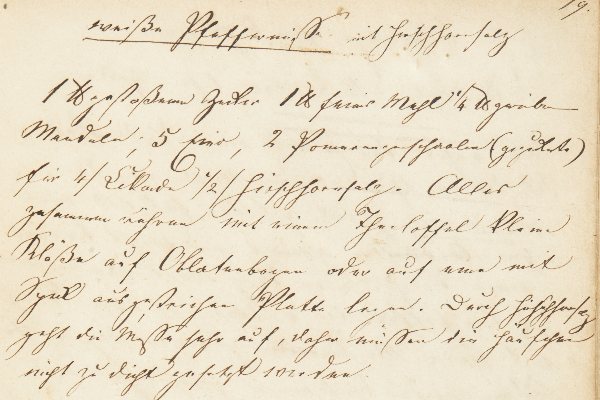 19.
weiße Pfeffernüsse mit Hirschhornsalz
1 ℔ gestoßenen Zucker 1 ℔ feines Mehl ¼ ℔ grüben
Mandeln, 5 Eier, 2 Pomeranzenschaalen (gezukerte)
für 4/ Cubeba ½/ Hirschhornsalz. Alles
zusammen rühren mit einem Theelöffel kleine
Klöße auf Oblatenbogen oder auf eine mit
Spek ausgestrichne Platte legen. Durch Hirschhornsalz
geht die Masse sehr auf, daher müssen die Häufchen
nicht zu dicht gesetzt werden